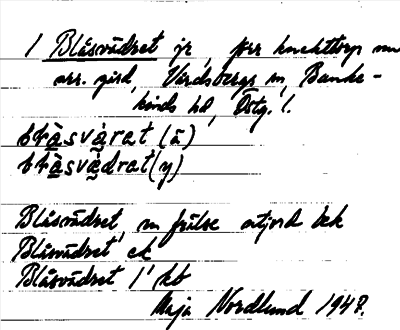 1 Blåsvädret jr, förr knekttorp nu
arr. gård, Vårdsbergs sn, Banke-
kinds hd, Östg. l.
blåsvärat (ä)
blåsvädrat (y)
Blåsvädret, sn frälse ek
Blåsvädret ek
Blåsvädret 1' kb
Maja Nordlund 1948.